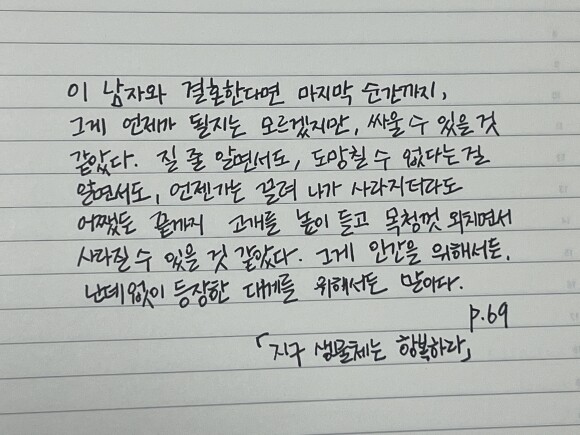 이 남자와 결혼한다면 마지막 순간까지,
그게 언제가 될지는 모르겠지만, 싸울 수 있을 것
같았다. 질 줄 알면서도, 도망칠 수 없다는걸
알면서도, 언젠가는 끌려 나가 사라지더라도
어쨌든 끝까지 고개를 높이 들고 목청껏 외치면서
사라질 수 있을 것 같았다. 그게 인간을 위해서든,
난데없이 등장한 대게를 위해서든 말이다.
p.69
「지구 생물체는 항복하라」